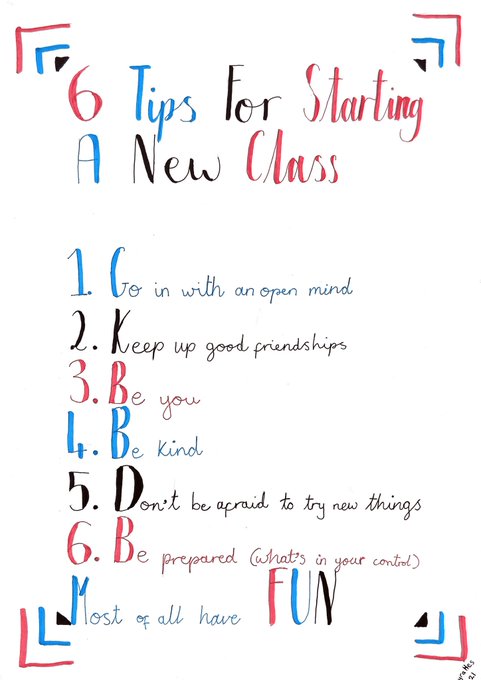 6 Tips For Starting
A New Class
1. Go in with an open mind
2. Keep up good friendships
3. Be you
4. Be kind
5. Don't be afraid to try new things
6. Be prepared (what's in your control)
Most of all have FUN
21